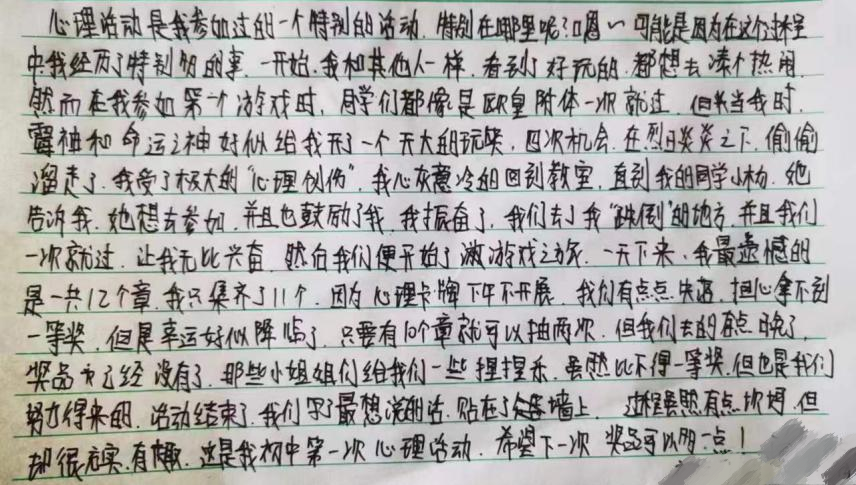 心理活动是我参加过的一个特别的活动。特别在哪里呢?嗯~可能是因为在这个过程
中我经历了特别多的事。一开始,我和其他人一样,看到了好玩的,都想去凑个热闹,
然而在我参加第一个游戏时,同学们都像是欧皇附体一次就过,但当我时,
雷神和命运之神好似给我开了一个天大的玩笑,四次机会,在烈日炎炎之下,偷偷
溜走了,我受了极大的“心理创伤”,我心灰意冷的回到教室,直到我的同学小杨,她
告诉我,她想去参加,并且也鼓励了我,我振奋了,我们去了我“跌倒”的地方,并且我们
一次就过,让我无比兴奋,然后我们便开始了游戏之旅。一天下来,我最遗憾的
是一共12个章,我只集齐了11个,因为心理卡牌下午不开展,我们有点点失落,担心拿不到
一等奖,但是幸运好似降临了,只要有10个章就可以抽两次,但我们去的有点晚了,
奖品已经没有了,那些小姐姐们给我们一些捏捏乐,虽然比不得一等奖,但也是我们
努力得来的,活动结束了,我们写了最想说的话,贴在了墙上,过程虽然有点坎坷,但
却很充实,有趣,这是我初中第一次心理活动,希望下一次奖品可以多一点!